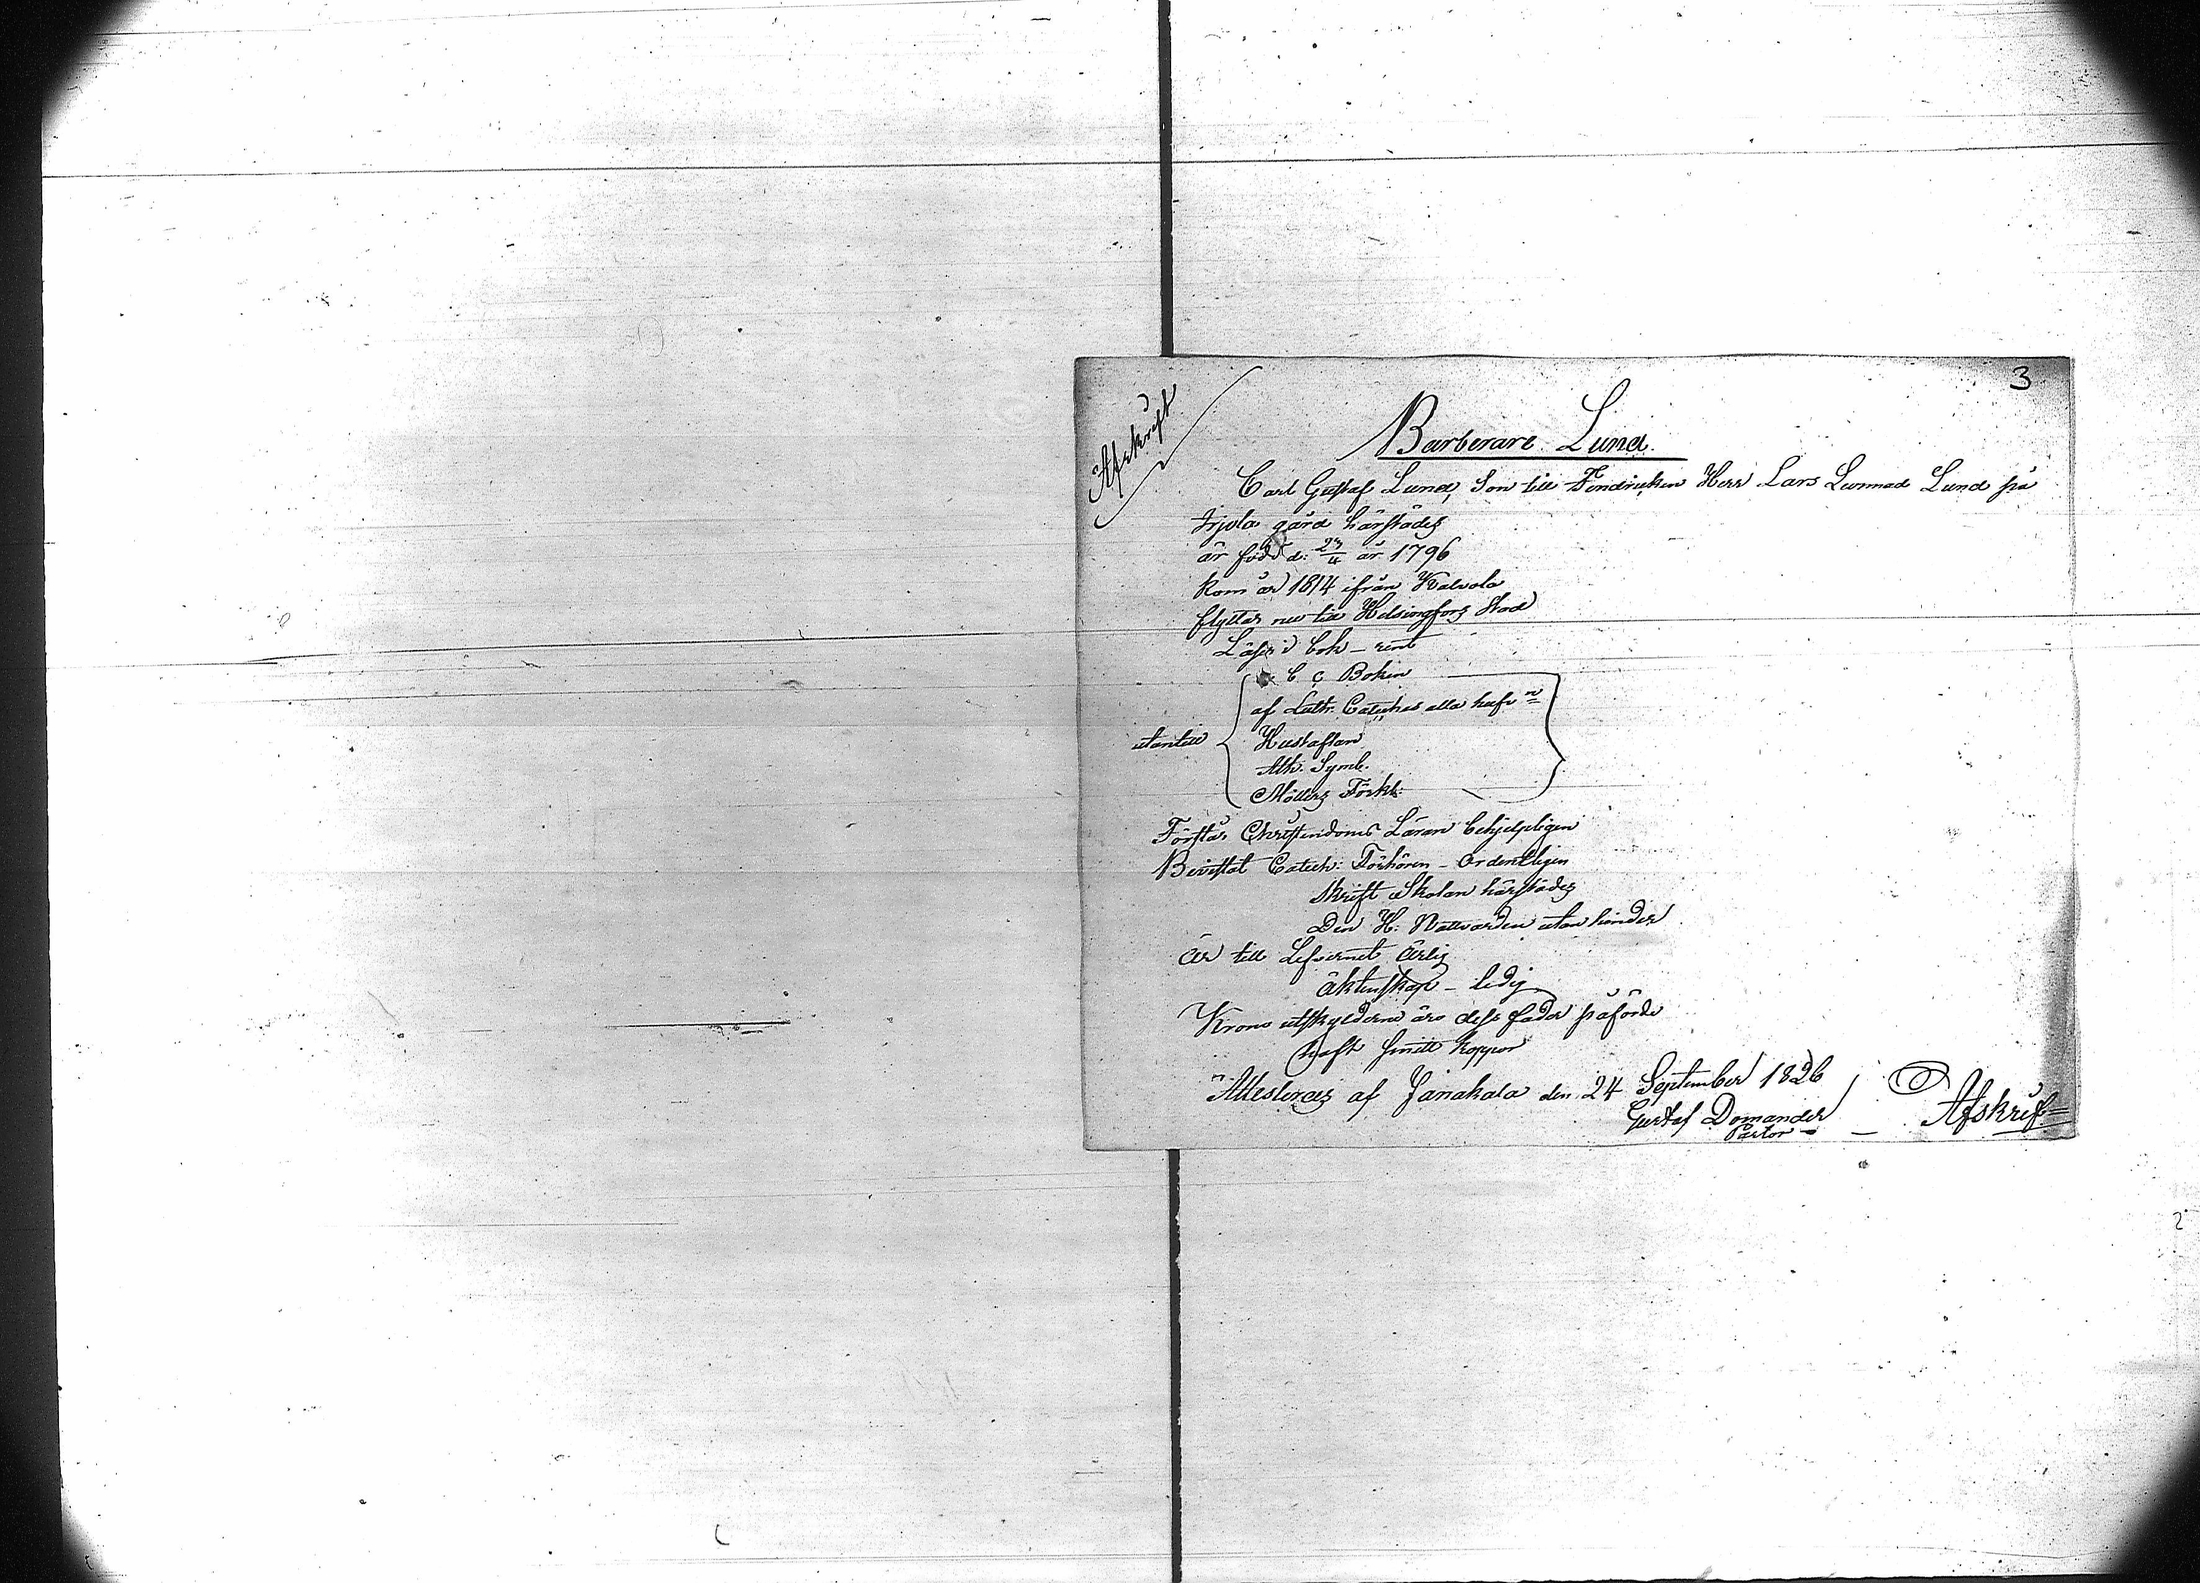 3
Afskrift
Barberare Lund.
Carl Gustaf Lund, Son till Fendricken Herr Lars Lund på
Irjola gård härstädes
är född d: 23/4 år 1796
kom år 1814 ifrån Kalvola
flyttar nu till Helsingfors Stad
Läser i bok - rent
utantill
A B C Boken
af Luth. Catches alla hufv n
Hustaflan
Ath. Symb.
Möllers Förkl:
Förstår Christendoms Läran behjelpligen
Bevistat Catech: Förhören - Ordentligen
Skrift Skolan härstädes
Den H. Nattvarden utan hinder
är till Lefvernet ärlig
äktenskap - ledig
Krono utskylderne äro dess fader påförde
haft koppor
Attesteras af Janakala den 24 September 1826
Gustaf Domander
Pastor
Afskrift